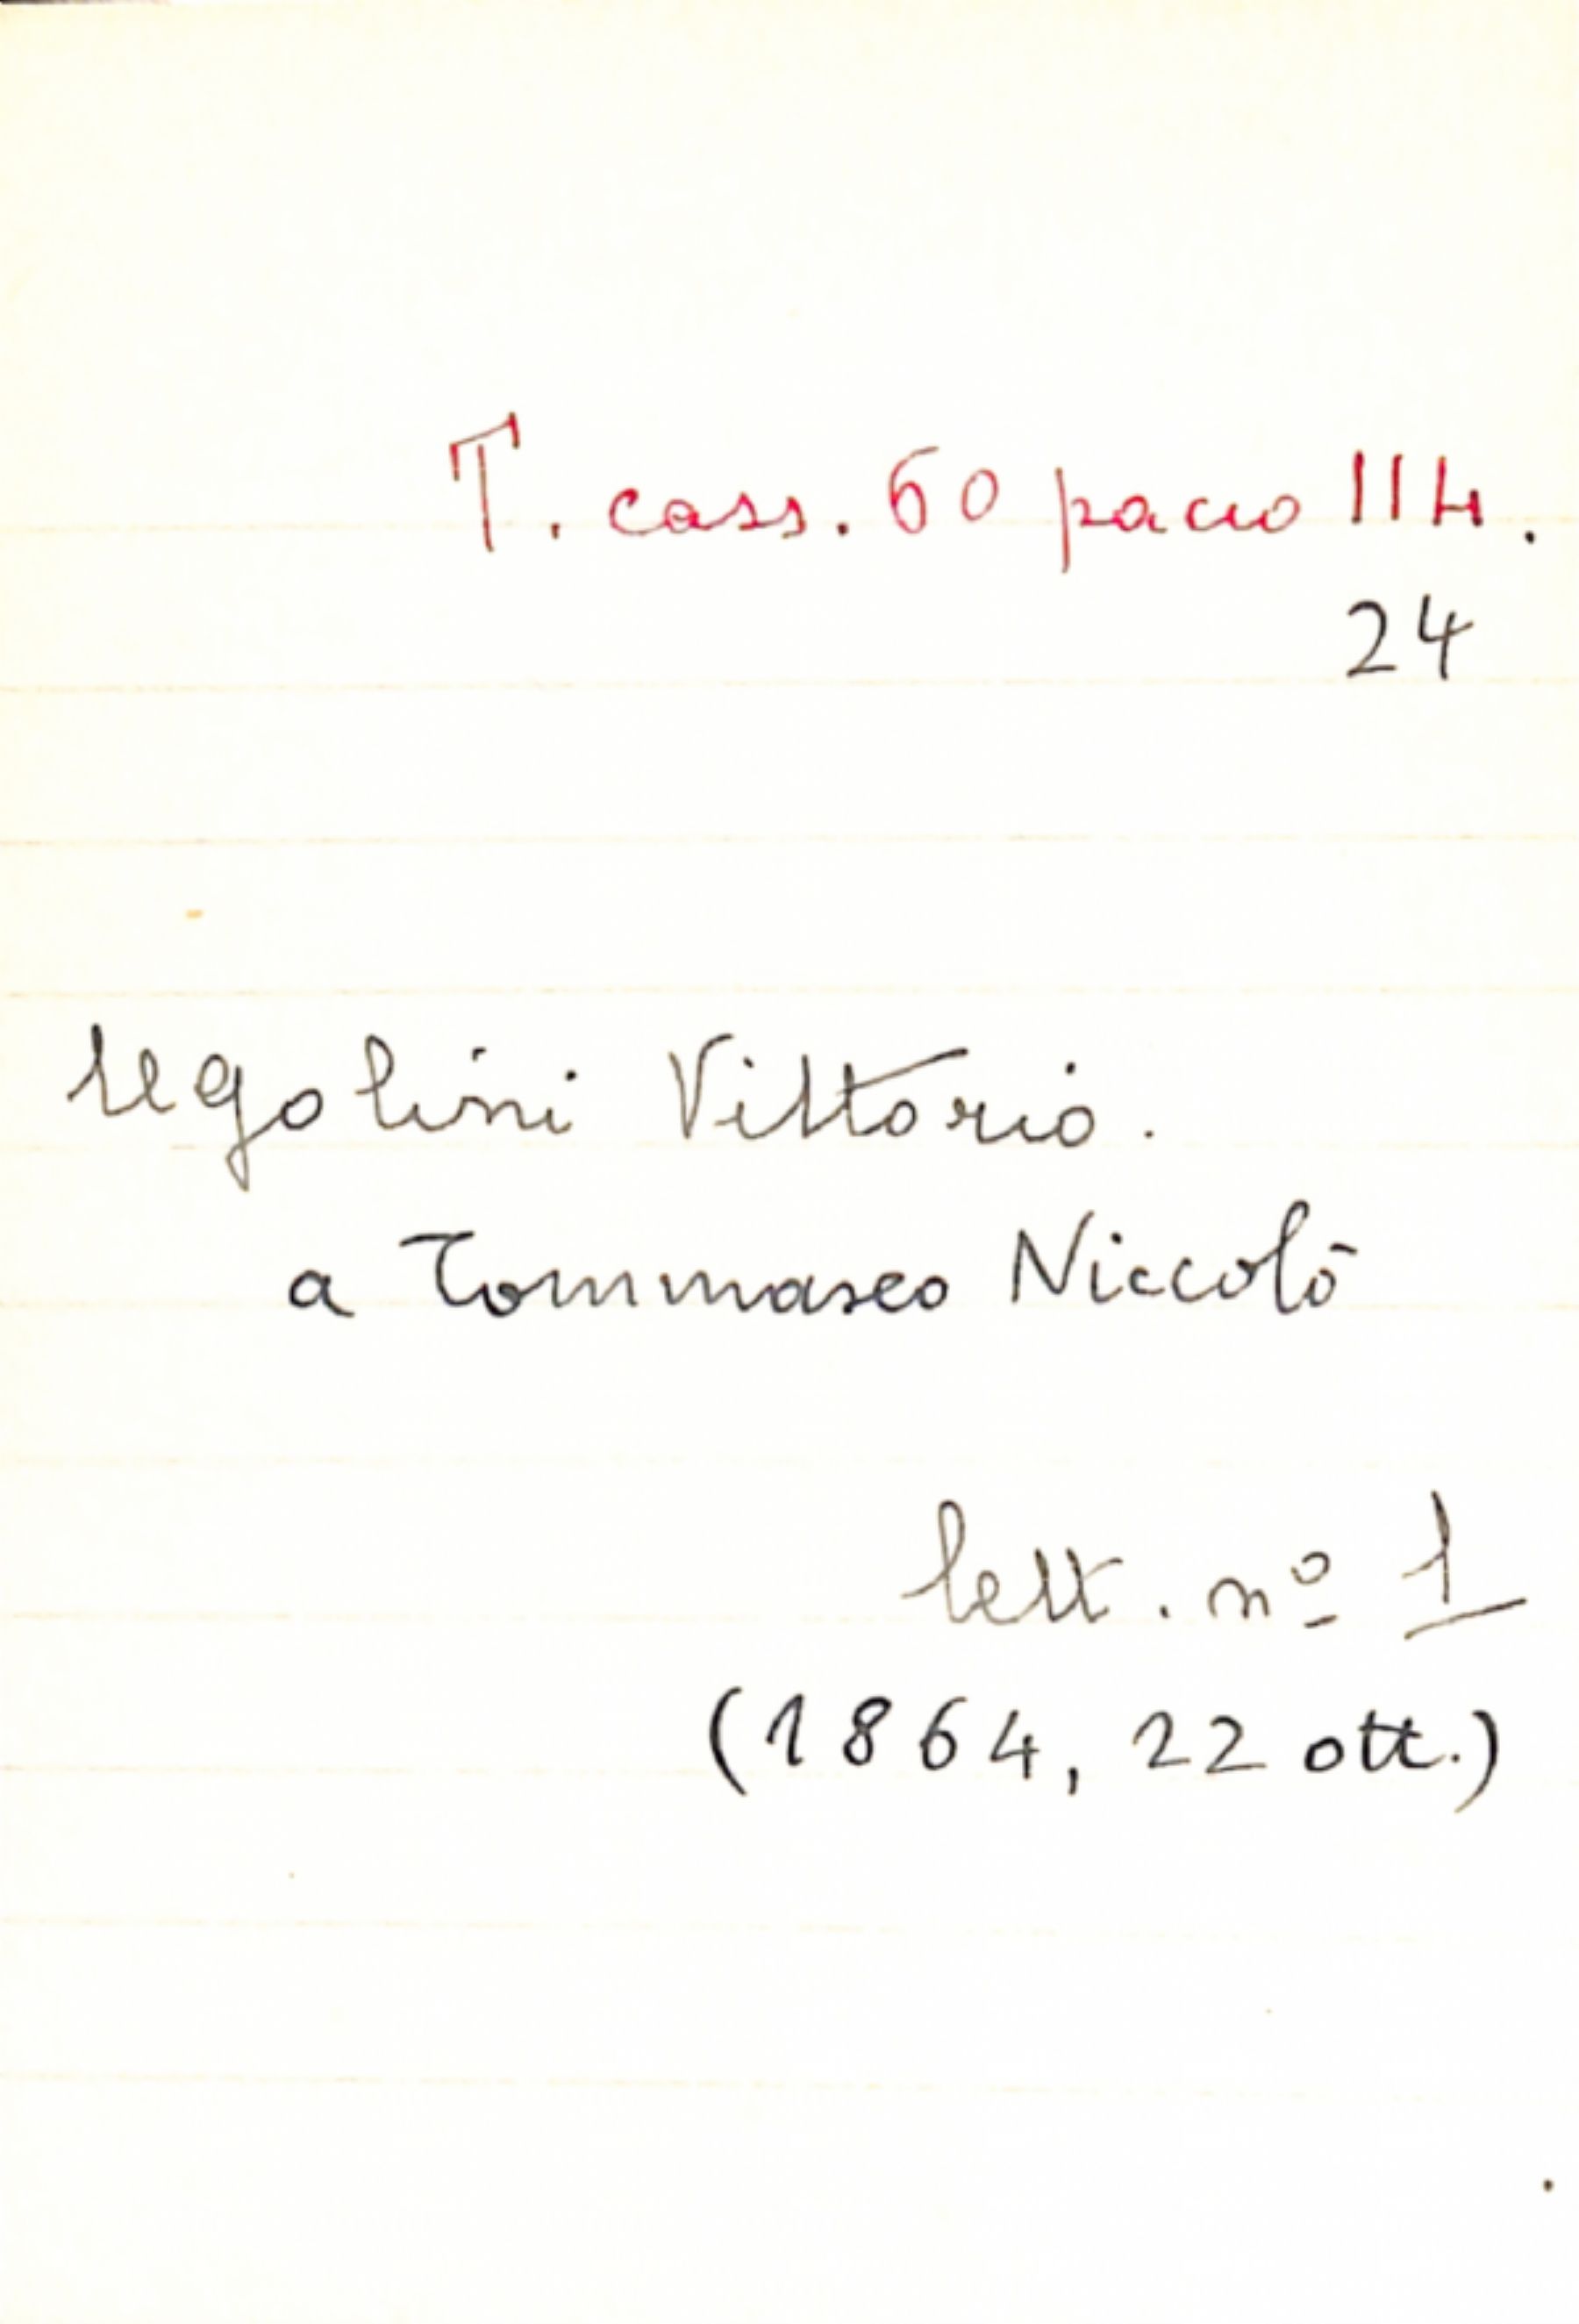 T. cass. 60 pacco 114.
24
Ugolini Vittorio.
a Tommaseo Niccolò
lett. nº 1
(1864, 22 ott.)